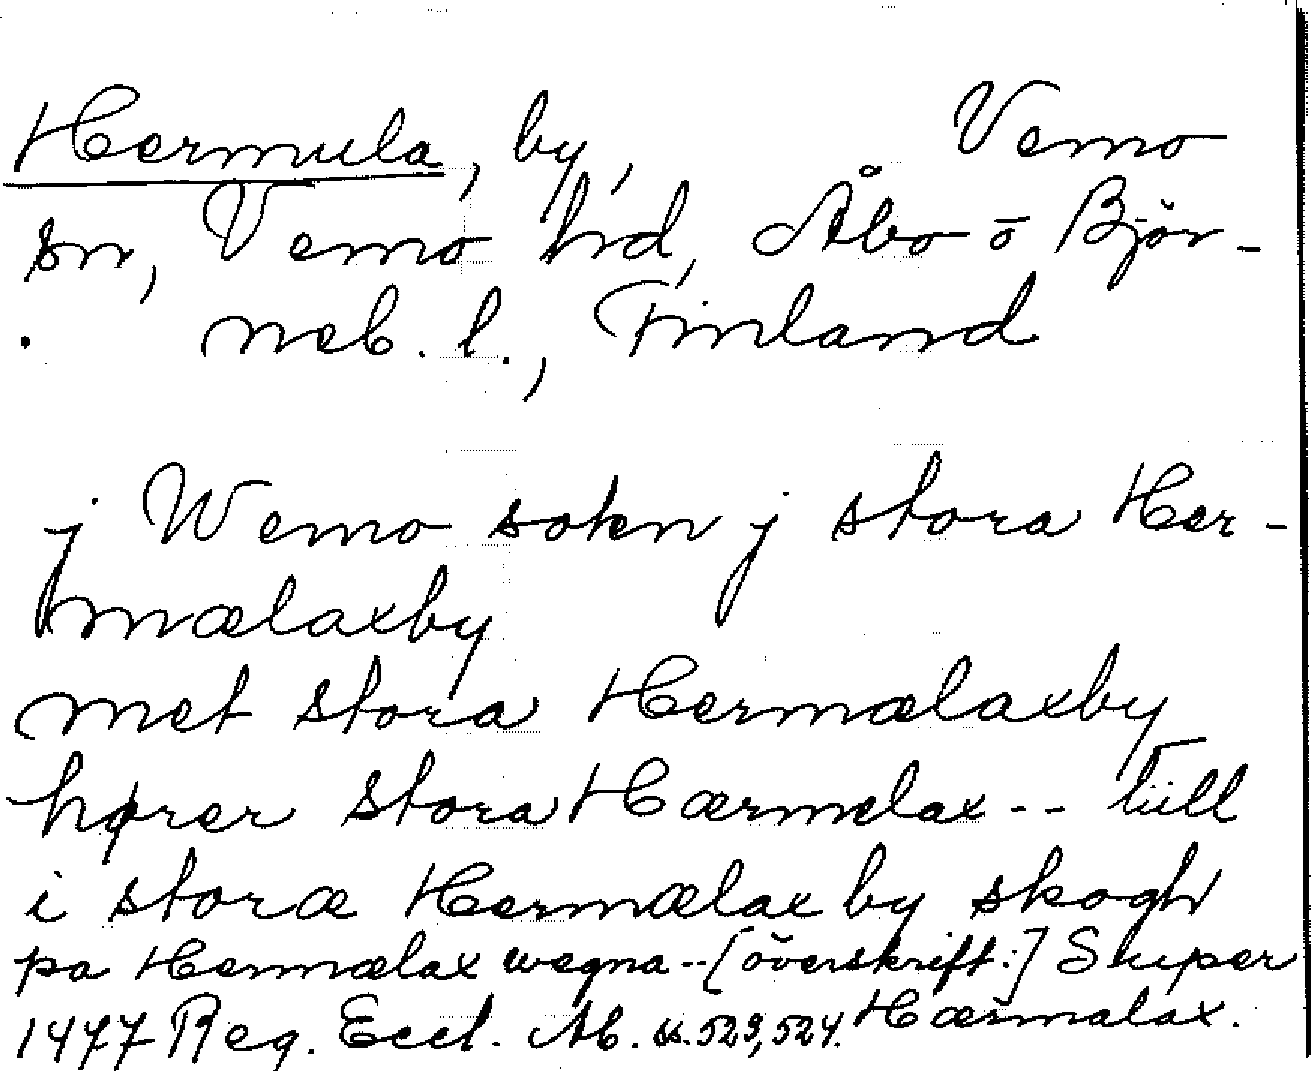 Hermula, by, Vemo
sn, Vemo hrd, Åbo o Björ-
neb. l., Finland
j Wemo sokn j stora Her-
mælaxby
met stora Hermælaxby
hører stora Hærmelax -- tiill
i storæ Hermælax by skogh
pa Hermælax wegna --[överskrift:] Super
Hærmalax.
1477 Reg. Eccl. Ab. ss. 523, 524.